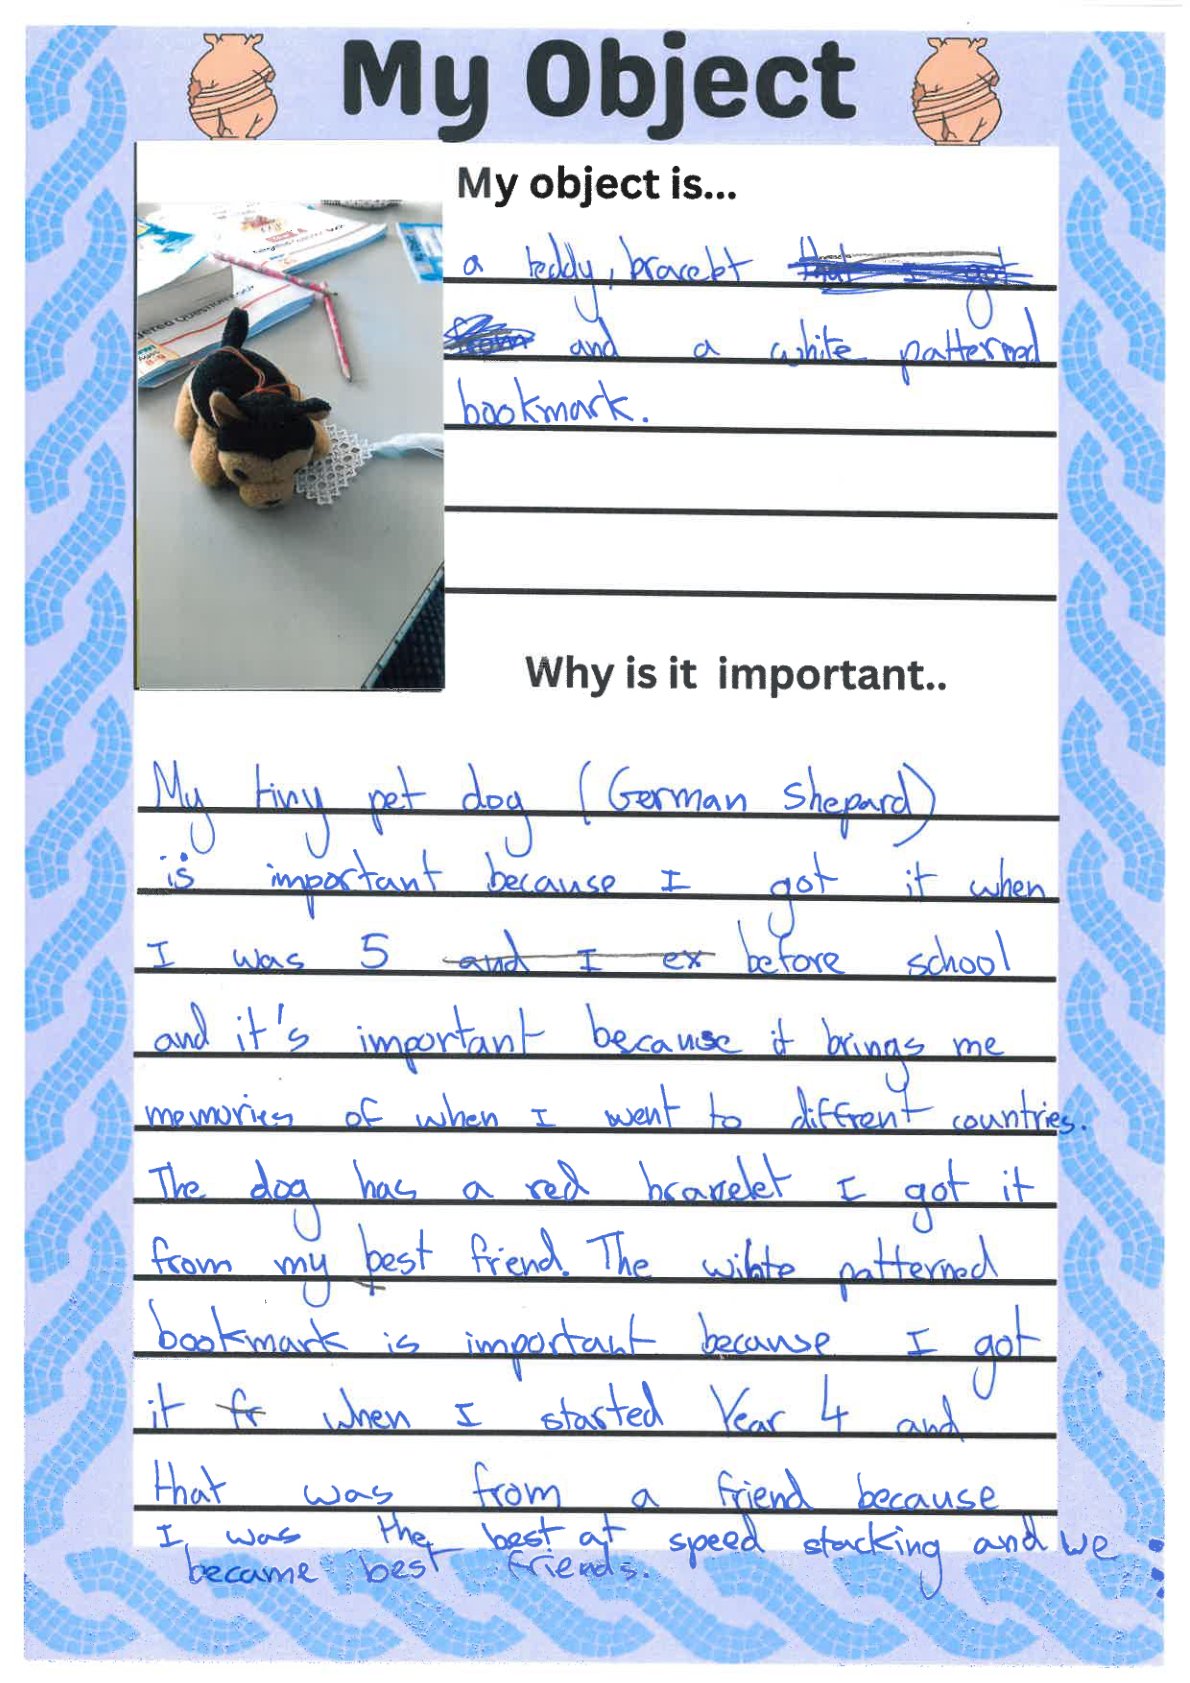 My Object
My object is...
a teddy, bracelet that I got
from and a white patterned
bookmark.
Why is it important..
My tiny pet dog (German shepard)
is important because I got it when
I was 5 and I ex before school
and it's important because it brings me
memories of when I went to diffrent countries.
The dog has a red bracelet I got it
from my best friend. The wihte patterned
bookmark is important because I got
it fr when I started Year 4 and
that was from a friend because
I was the best at speed stacking and we
became best friends.